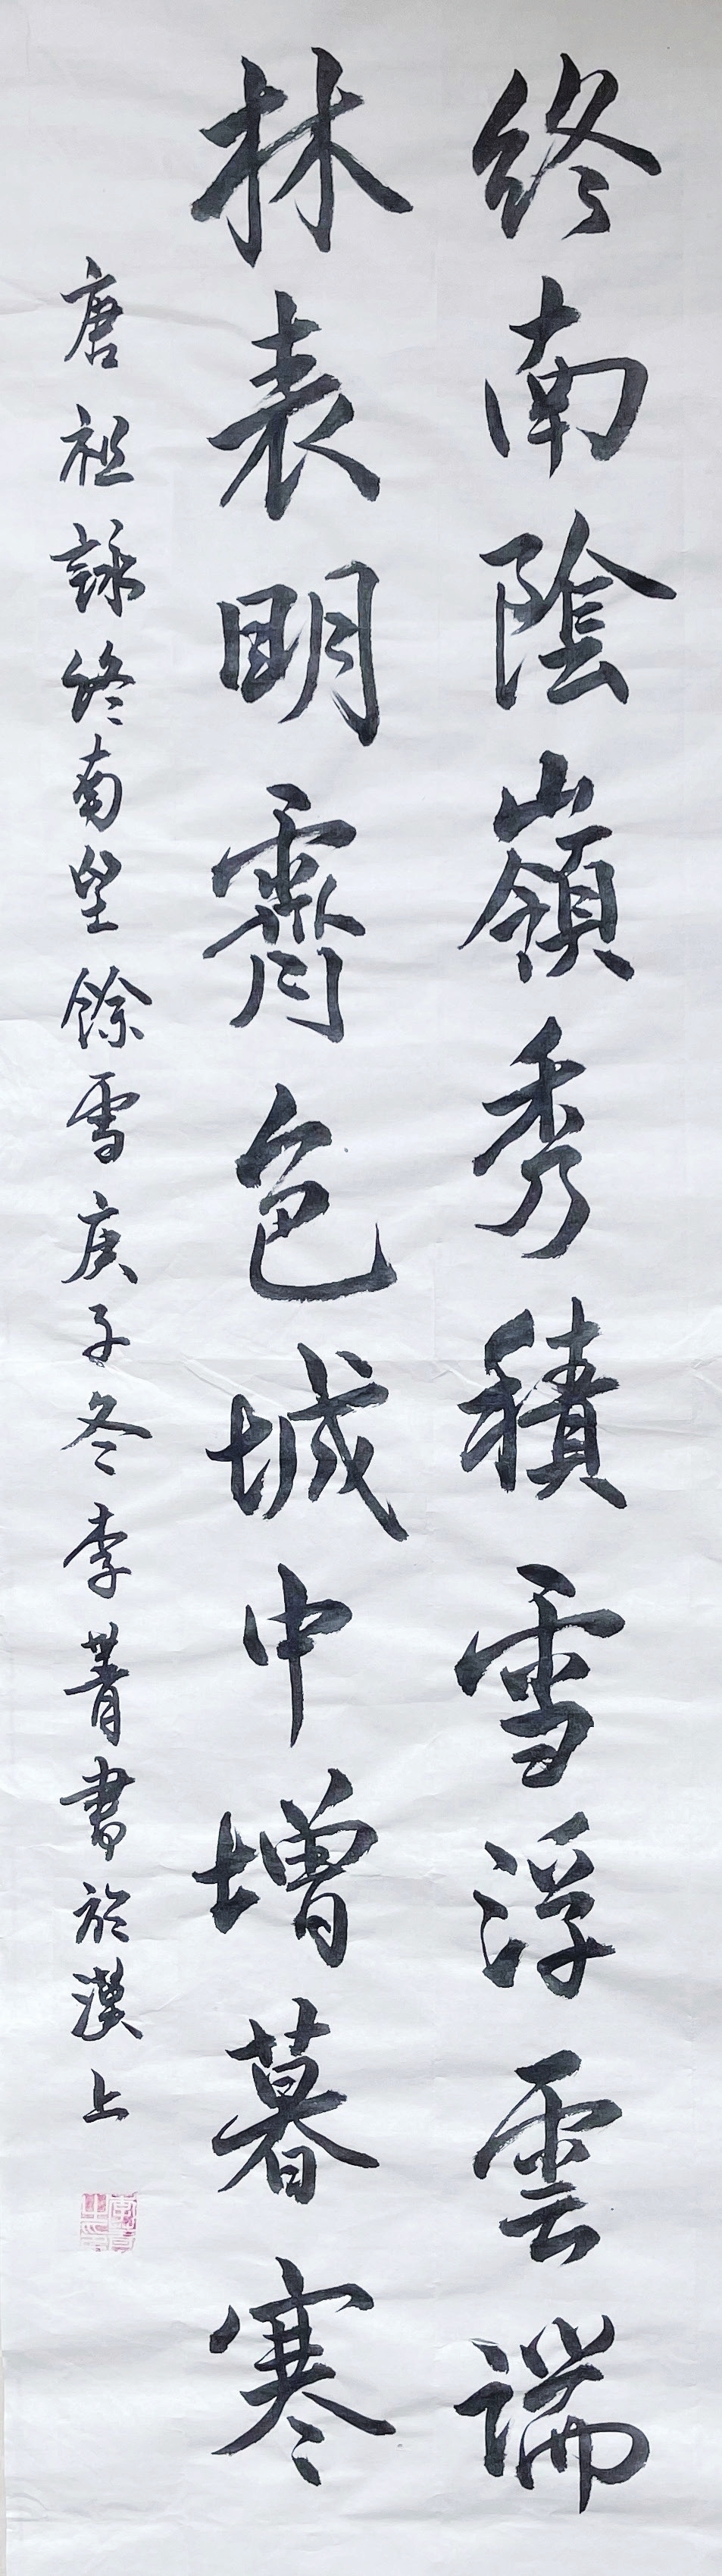 終南陰嶺秀積雪浮雲端
林表明霽色城中增暮寒
唐祖詠終南望餘雪庚子冬李菁書於漢上